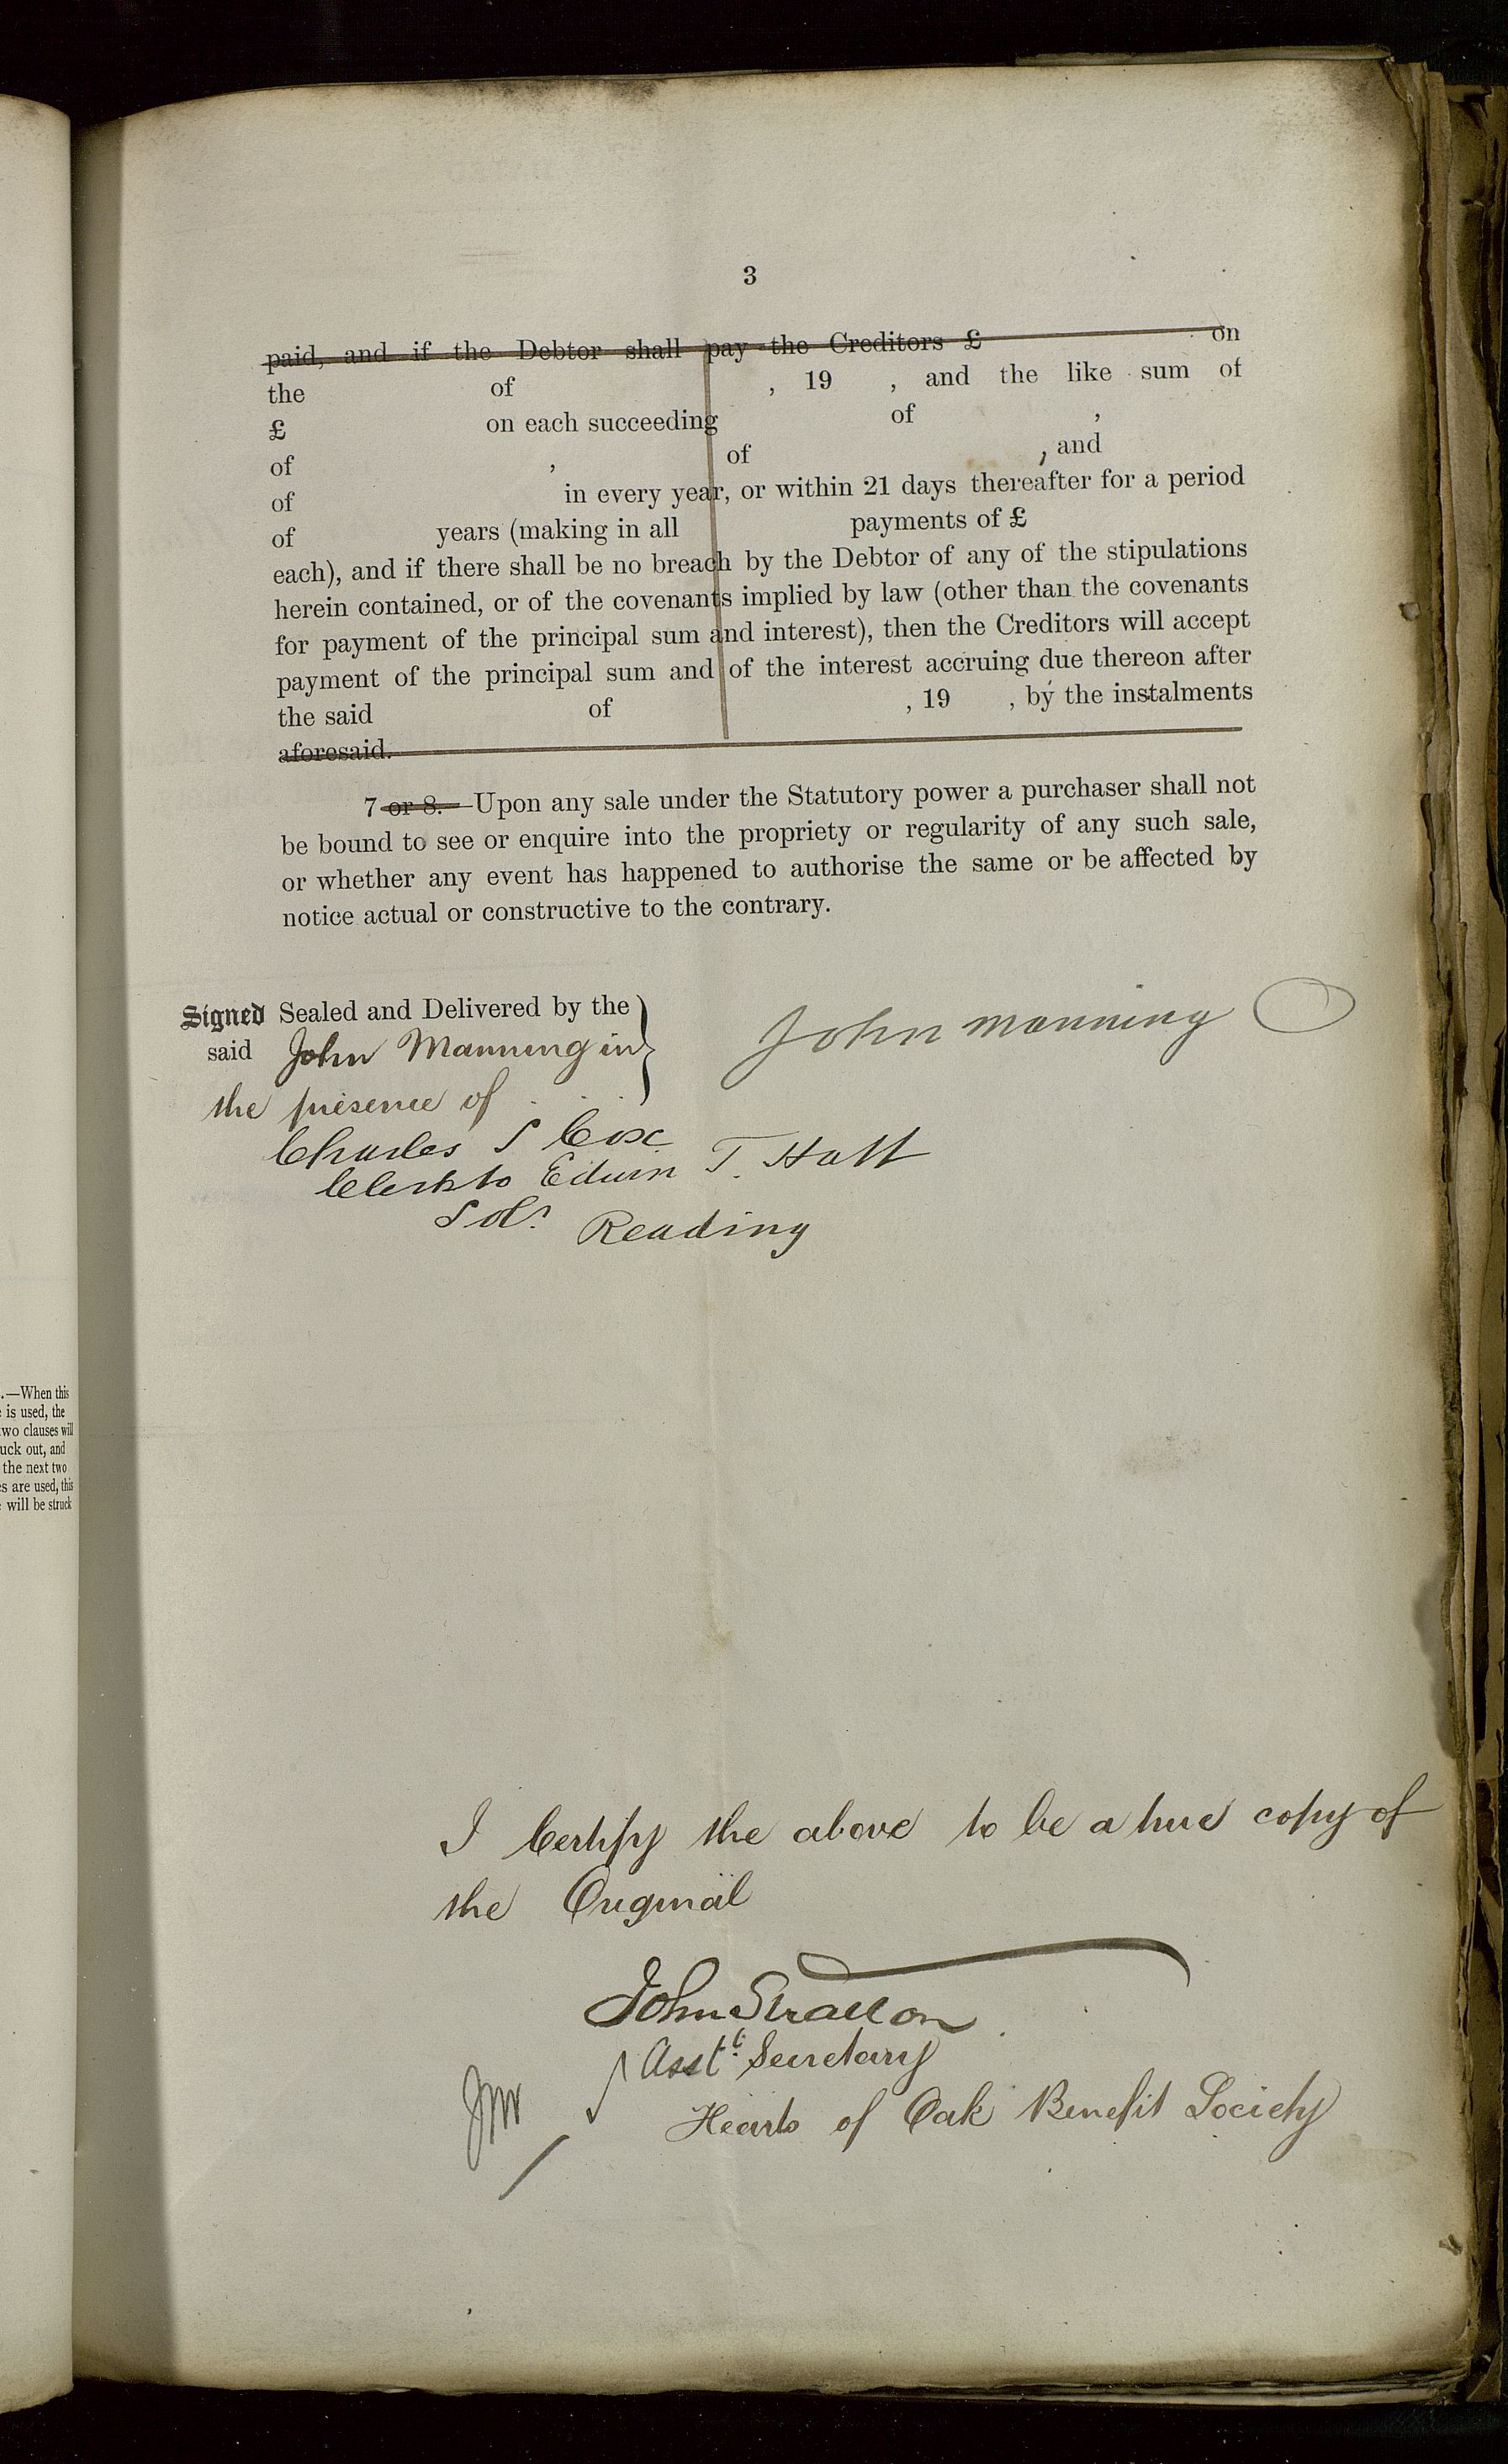 3
paid, and if the Debtor shall pay the Creditors £ on
the of , 19 , and the like sum of
£ on each succeeding of ,
of , of , and
of in every year, or within 21 days thereafter for a period
of years (making in all payments of £
each), and if there shall be no breach by the Debtor of any of the stipulations
herein contained, or of the covenants implied by law (other than the covenants
for payment of the principal sum and interest), then the Creditors will accept
payment of the principal sum and of the interest accruing due thereon after
the said of , 19 , by the instalments
aforesaid.
7 or 8.—Upon any sale under the Statutory power a purchaser shall not
be bound to see or enquire into the propriety or regularity of any such sale,
or whether any event has happened to authorise the same or be affected by
notice actual or constructive to the contrary.
Signed Sealed and Delivered by the
said John Manning in
the presence of
John Manning
Charles S Cox
Clerk to Edwin T. Hatt
Solr. Reading
.—When this
is used, the
two clauses will
uck out, and
the next two
s are used, this
will be struck
I Certify the above to be a true copy of
the Original
John Stratton
Asst. Secretary
Hearts of Oak Benefit Society